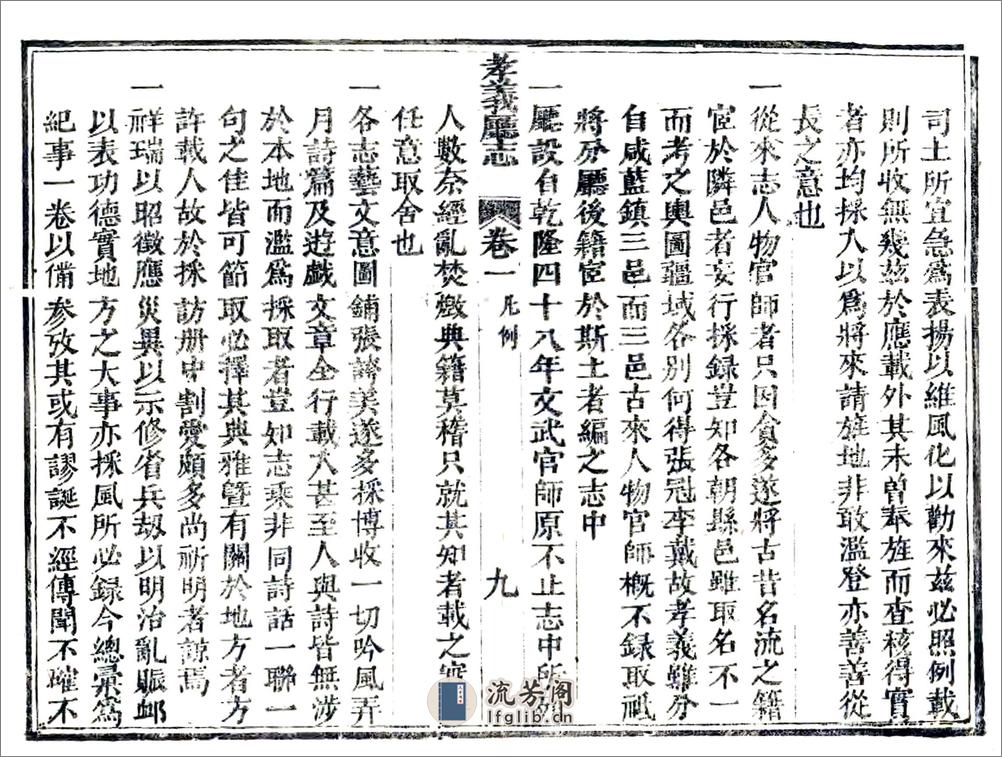 司土所宜急爲表揚以維風化以勸來兹必照例載
則所收無幾兹於應載外其未曽奉旌而查核得實
者亦均採入以爲將來請旌地非敢濫登亦善善從
長之意也
一從來志人物官師者只因貪多遂將古昔名流之籍
宦於隣邑者妄行採録豈知各朝縣邑雖取名不一
而考之輿圖疆域各别何得張冠李戴故孝義雖分
自咸藍鎮三邑而三邑古來人物官師槪不録取祗
將分廳後籍宦於斯土者編之志中
一廳設自乾隆四十八年文武官師原不止志中所
孝義廳志
卷一
凡例
九
人數奈經亂焚燬典籍莫稽只就其知者載之實
任意取舍也
一各志藝文意圖鋪張誇美遂多採博收一切吟風弄
月詩篇及遊戲文章全行載入甚至人與詩皆無涉
於本地而濫爲採取者豈如志乘非同詩話一聯一
句之佳皆可節取必擇其典雅暨有關於地方者方
許載入故於採訪册中割愛頗多尚祈明者諒焉
一祥瑞以昭徵應災異以示修省兵刼以明治亂賑䘏
以表功德實地方之大事亦採風所必録今總彚爲
紀事一卷以備参攷其或有謬誕不經傳聞不確不
流芳阁
lfglib.cn